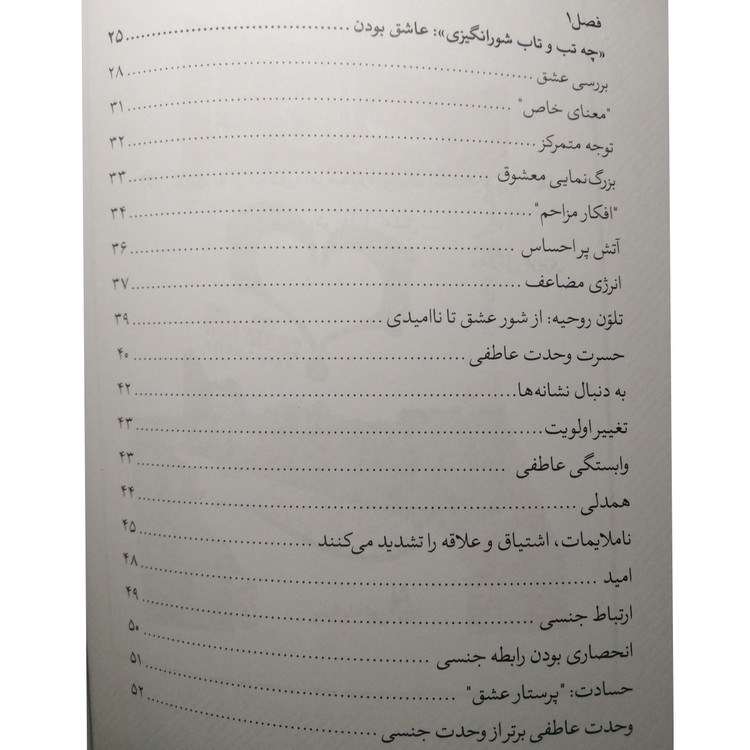 فصل۱
«چه تب و تاب شورانگیزی»: عاشق بودن ........................................ ۲۵
بررسی عشق ........................................ ۲۸
"معنای خاص" ........................................ ۳۱
توجه متمرکز ........................................ ۳۲
بزرگ‌نمایی معشوق ........................................ ۳۳
"افکار مزاحم" ........................................ ۳۴
آتش پر احساس ........................................ ۳۶
انرژی مضاعف ........................................ ۳۷
تلوّن روحیه: از شور عشق تا ناامیدی ........................................ ۳۹
حسرت وحدت عاطفی ........................................ ۴۰
به دنبال نشانه‌ها ........................................ ۴۲
تغییر اولویت ........................................ ۴۳
وابستگی عاطفی ........................................ ۴۳
همدلی ........................................ ۴۴
ناملایمات، اشتیاق و علاقه را تشدید می‌کنند ........................................ ۴۵
امید ........................................ ۴۸
ارتباط جنسی ........................................ ۴۹
انحصاری بودن رابطه جنسی ........................................ ۵۰
حسادت: "پرستار عشق" ........................................ ۵۱
وحدت عاطفی برتر از وحدت جنسی ........................................ ۵۲